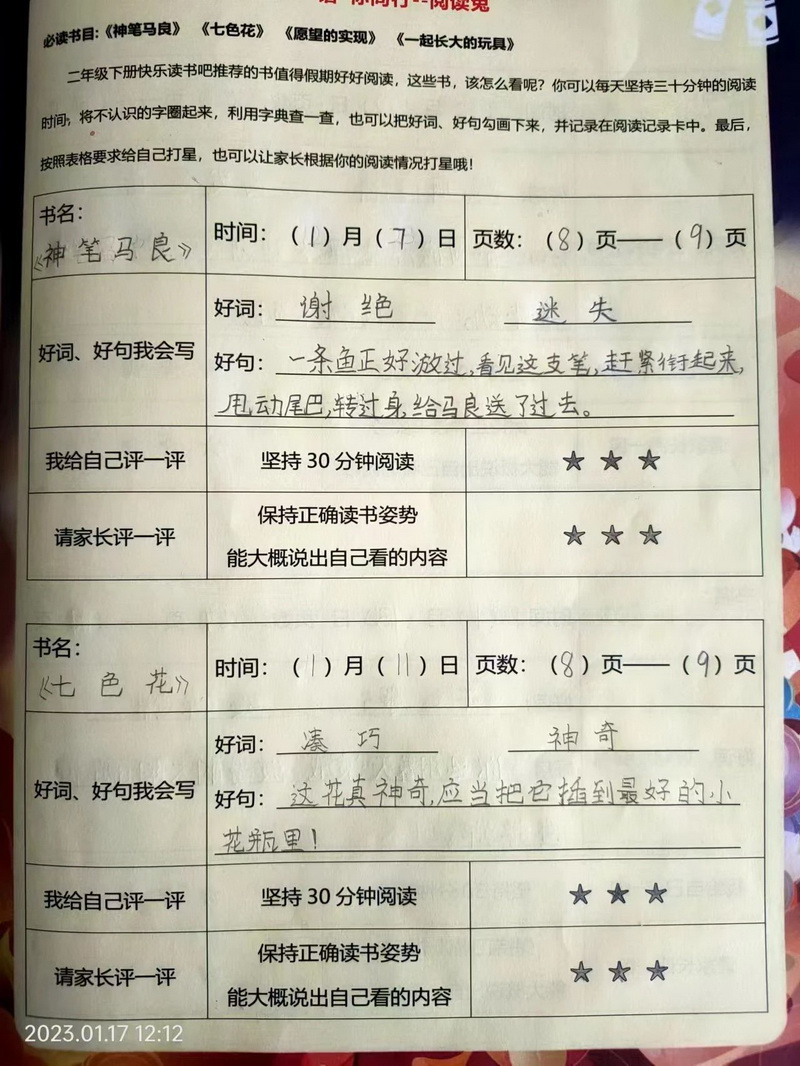 你同行--阅读兔
必读书目:《神笔马良》 《七色花》 《愿望的实现》 《一起长大的玩具》
二年级下册快乐读书吧推荐的书值得假期好好阅读，这些书，该怎么看呢？你可以每天坚持三十分钟的阅读
时间，将不认识的字圈起来，利用字典查一查，也可以把好词、好句勾画下来，并记录在阅读记录卡中。最后，
按照表格要求给自己打星，也可以让家长根据你的阅读情况打星哦！
书名：
《神笔马良》
时间：（1）月（7）日
页数：（8）页——（9）页
好词、好句我会写
好词： 谢绝 迷失
好句：一条鱼正好游过,看见这支笔,赶紧衔起来,
甩动尾巴,转过身,给马良送了过去。
我给自己评一评
坚持 30 分钟阅读
★ ★ ★
请家长评一评
保持正确读书姿势
能大概说出自己看的内容
★ ★ ★
书名：
《七色花》
时间：（1）月（11）日
页数：（8）页——（9）页
好词、好句我会写
好词： 凑巧 神奇
好句： 这花真神奇,应当把它插到最好的小
花瓶里！
我给自己评一评
坚持 30 分钟阅读
★ ★ ★
请家长评一评
保持正确读书姿势
能大概说出自己看的内容
★ ★ ★
2023.01.17 12:12